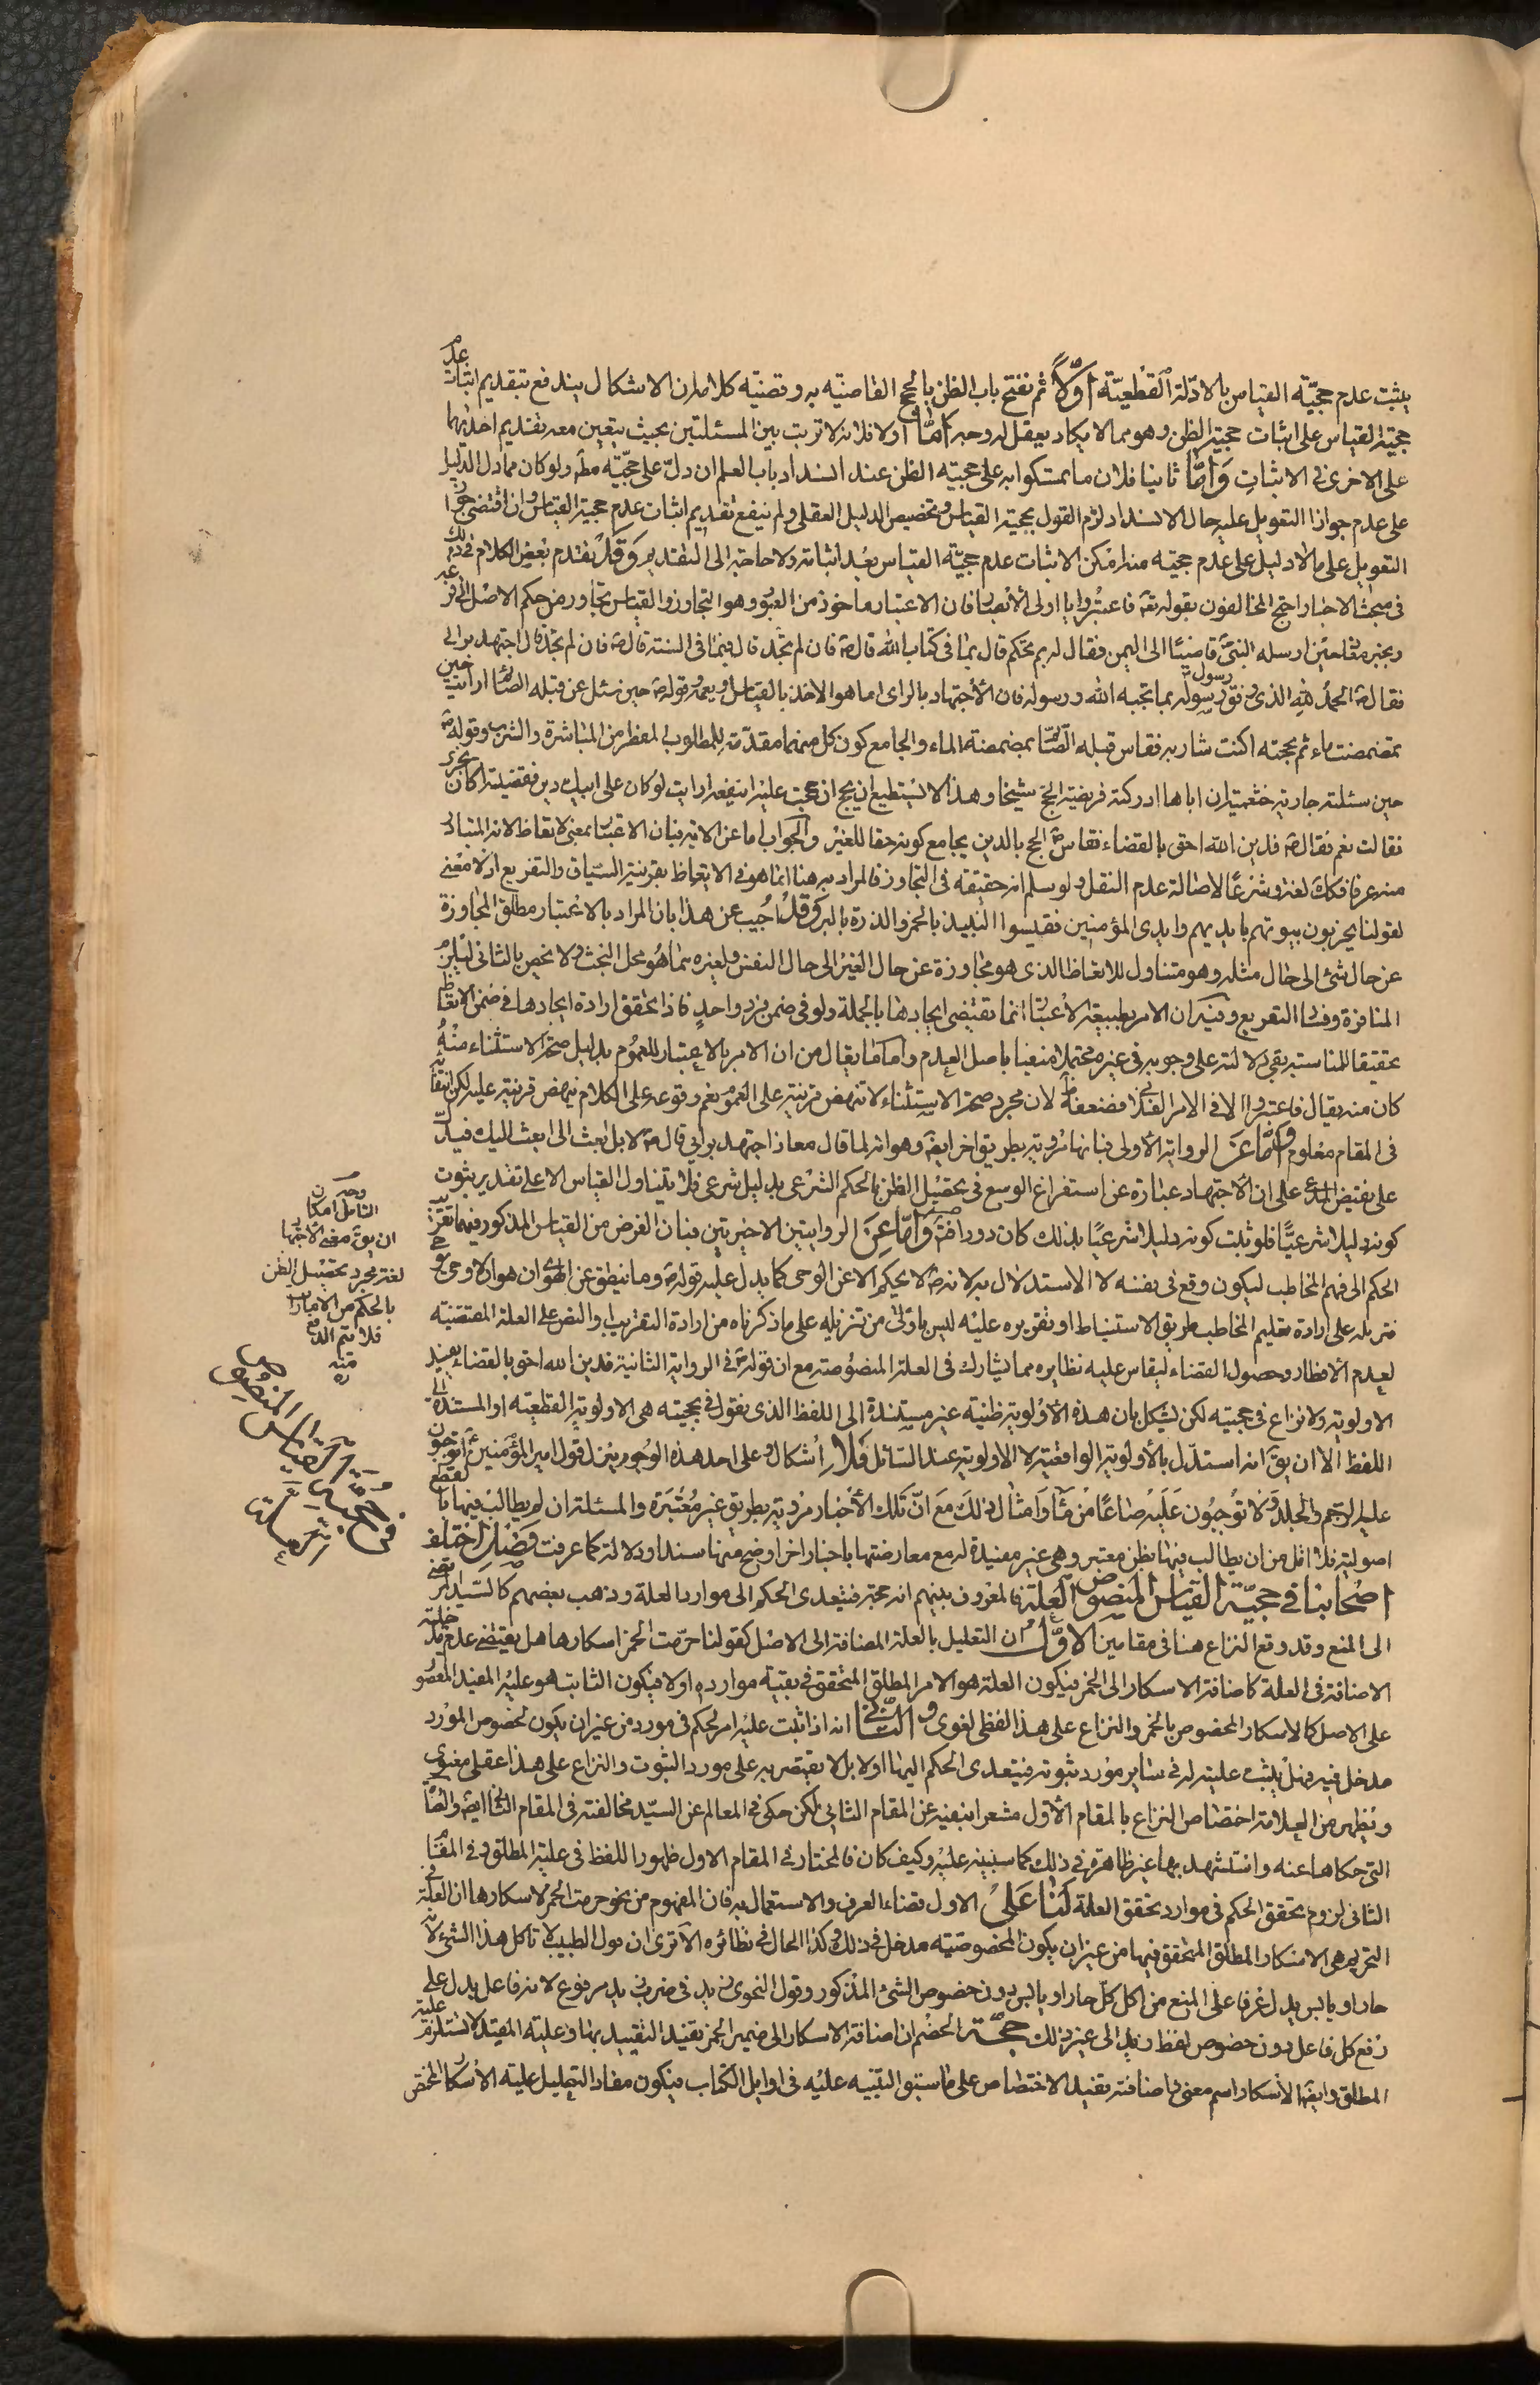 يثبت عدم حجيّة القياس بالادلة القطعيّة اوّلاً ثم نفتح باب الظن بالحجج القاضية به وقضيّة كلامه ان الاشكال يندفع بتقديم اثبات عدم
حجيّة القياس على اثبات حجية الظن وهو مما لا يكاد يعقل له وجه امّا اولا فلانه لا ترتب بين المسئلتين بحيث يتعين معه تقديم احديهما
على الاخرى فى الاثبات وامّا ثانيا فلان ما تمسكوا به على حجية الظن عند انسداد باب العلم ان دلّ على حجيّته مطلقا ولو كان مما دل الدليل
على عدم جواز التعويل عليه حال الانسداد لزم القول بحجية القياس وتخصيص الدليل العقلى ولم ينفع تقديم اثبات عدم حجية القياس وان اقتضى جواز
التعويل على ما لا دليل على عدم حجيته منه امكن الاثبات عدم حجيّة القياس بعد اثباته ولا حاجة الى التقديم وقد تقدم بعض الكلام فى ذلك
فى مبحث الاخبار احتج المخالفون بقوله تعالى فاعتبروا يا اولى الابصار فان الاعتبار ماخوذ من العبور وهو التجاوز والقياس تجاوز من حكم الاصل الى فرعه
وبخبر معاذ حين ارسله النبى ص قاضيًا الى اليمن فقال له بم تحكم قال بما فى كتاب الله قال ص فان لم تجد قال فبما فى السنة قال ص فان لم تجد قال اجتهد برايى
فقال ص الحمد لله الذى وفق رسول رسوله بما يحبه الله ورسوله فان الاجتهاد بالراى انما هو الاخذ بالقياس وبعموم قوله ص حين سئل عن قبلة الصائم ارايت حين
تمضمضت بماء ثم مججته اكنت شاربه فقاس قبلة الصائم بمضمضة الماء والجامع كون كل منهما مقدّمة للمطلوب المفطر من المباشرة والشرب وقوله ص
حين سئلته جارية خثعمية ان اباها ادركته فريضة الحج شيخا وهذا لا يستطيع ان يحج ان حججت عليه اينفعه ارايت لو كان على ابيك دين فقضيته اكان يجزى
فقالت نعم فقال ص فدين الله احق بالقضاء فقاس ص الحج بالدين بجامع كونه حقا للغير والجواب اما عن الاية فبان الاعتبار بمعنى لاتعاظ لانه المتبادر
منه عرفا فكك لغة وشرعًا لاصالة عدم النقل ولو سلم انه حقيقة فى التجاوز فالمراد به هنا انما هو فى الاتعاظ بقرينة السّياق والتفريع اذ لا معنى
لقولنا يخربون بيوتهم بايديهم وايدى المؤمنين فقيسوا النبيذ بالخمر والذرة بالبر وقد اجيب عن هذا بان المراد بالاعتبار مطلق المجاوزة
عن حال شئ الى حال مثله وهو متناول للاتعاظ الذى هو مجاوزة عن حال الغير الى حال النفس ولغيره مما هو محل البحث ولا يخص بالثانى ليلزم
المنافرة وفساد التفريع وفيه ان الامر بطبيعة الاعتبار انما تقتضى ايجادها بالجملة ولو فى ضمن فرد واحدٍ فاذا تحقق ارادة ايجادها فى ضمن الاتعاظ
تحقيقا للمناسبة بقى دلالته على وجوبه فى غيره محتملا منفيا باصل العدم واما ما يقال من ان الامر بالاعتبار للعموم بدليل صحة الاستثناء منه
كان منه يقال فاعتبروا الا فى الامر الفلانى فضعفه ظ لان مجرد صحة الاستثناء لا تنهض قرينة على العموم نعم وقوعه على الكلام ينهض قرينة عليه لكن انتفائه
فى المقام معلوم وامّا عن الرواية الاولى فبانها مروية بطريق اخر ايضا وهو انه لما قال معاذ اجتهد برايى قال ص لا بل ابعث الى ابعث اليك فيدلّ
على نقيض المدعى على ان الاجتهاد عبارة عن استفراغ الوسع فى تحصيل الظن بالحكم الشرعى بدليل شرعى فلا يتناول القياس الا على تقدير ثبوت
كونه دليلا شرعيًّا فلو ثبت كونه دليلا شرعيًا بذلك كان دورا وامّا عن الروايتين الاخيرتين فبان الغرض من القياس المذكور فيهما تقريب
الحكم الى فهم المخاطب ليكون اوقع فى نفسه لا الاستدلال به لانه ص لا يحكم الا عن الوحى كما يدل عليه قوله تعالى وما ينطق عن الهوى ان هو الا وحى يوحى
فتنزيله على ارادة تعليم المخاطب طريق الاستنباط او تقريره عليه ليس باولى من تنزيله على ما ذكرناه من ارادة التقريب او النص على العلة المقتضية
لعدم الافطار وحصول القضاء ليقاس عليه نظايره مما يشارك فى العلة المنصوصة مع ان قوله ص فى الرواية الثانية فدين الله احق بالقضاء يفيد
الاولوية ولا نزاع فى حجيته لكن يشكل بان هذه الاولوية ظنية غير مستندة الى اللفظ الذى نقول فى بحجيته هى الاولوية القطعية او المستندة الى
اللفظ الا ان يق انه استدلّ بالاولوية الواقعية لا الاولوية عند السائل فلا اشكال وعلى احد هذه الوجوه ينزل قول امير المؤمنين ع اتوجبون
عليه الرجم والجلد ولا توجبون عليه صاعًا من ماء وامثال ذلك مع انّ تلك الاخبار مروية بطريق غير معتبرة والمسئلة ان لم يطالب فيها بالقطع
اصولية فلا اقل من ان يطالب فيها بظن معتبر وهى غير مفيدة له مع معارضتها باخبار اخر اوضح منها سندا ودلالة كما عرفت فصل اختلف
اصحابنا فى حجيّة القياس المنصوص العلة فالمعروف بينهم انه حجة فيتعدى الحكم الى موارد العلة وذهب بعضهم كالسّيد المرتضى
الى المنع وقد وقع النزاع هنا فى مقامين الاوّل ان التعليل بالعلة المضافة الى الاصل كقولنا حرّمت الخمر لاسكارها هل يقتضى عدم مدخلية
الاضافة فى العلة كاضافة الاسكار الى الخمر فيكون العلة هو الامر المطلق المتحقق فى بقية موارده اولا فيكون الثابت هو علية المقيد المقصور
على الاصل كالاسكار المخصوص بالخمر والنزاع على هذا لفظى لغوى والثانى انه اذا ثبت علية امر لحكم فى مورد من غير ان يكون لخصوص المورد
مدخل فيه فهل يثبت عليته له فى ساير موارد ثبوته فيتعدى الحكم اليها اولا بل لا يقتصر به على مورد الثبوت والنزاع على هذا عقلى معنوى
ويظهر من العلامة اختصاص النزاع بالمقام الاول مشعرا بنفيه عن المقام الثانى لكن حكى فى المعالم عن السيّد مخالفته فى المقام الثانى ايضا والعبارة
التى حكاها عنه واستشهد بها غير ظاهرة فى ذلك كما سننبه عليه وكيف كان فالمختار فى المقام الاول ظهور اللفظ فى علية المطلق وفى المقام
الثانى لزوم تحقق الحكم فى موارد تحقق العلة لنا على الاول قضاء العرف والاستعمال به فان المفهوم من نحو حرمت الخمر لاسكارها ان العلة فى
التحريم هى الاسكار المطلق المتحقق فيها من غير ان يكون لخصوصيته مدخل فى ذلك وكذا الحال فى نظائره الا ترى ان قول الطبيب لا تاكل هذا الشئ لانّه
حار او يابس يدل عرفا على المنع من اكل كلّ حار او يابس دون خصوص الشئ المذكور وقول النحوى زيد فى ضرب زيد مرفوع لانه فاعل يدل على
رفع كل فاعل دون خصوص لفظ زيد الى غير ذلك حجة الخصم ان اضافة الاسكار الى ضمير الخمر تفيد التقييد بها وعلية المقيد لا تستلزم علية
المطلق وايضا الاسكار اسم معنى فاضافته تفيد الاختصاص على ما سبق التنبيه عليه فى اوايل الكتاب فيكون مفاد التعليل علية الاسكار المختص
وجه
التامل امكان
ان يق معنى الاجتهاد
لغة مجرد تحصيل الظن
بالحكم من الامارات
فلا يتم الدفع
منه
ره
فى حجية القياس المنصوص
العلة